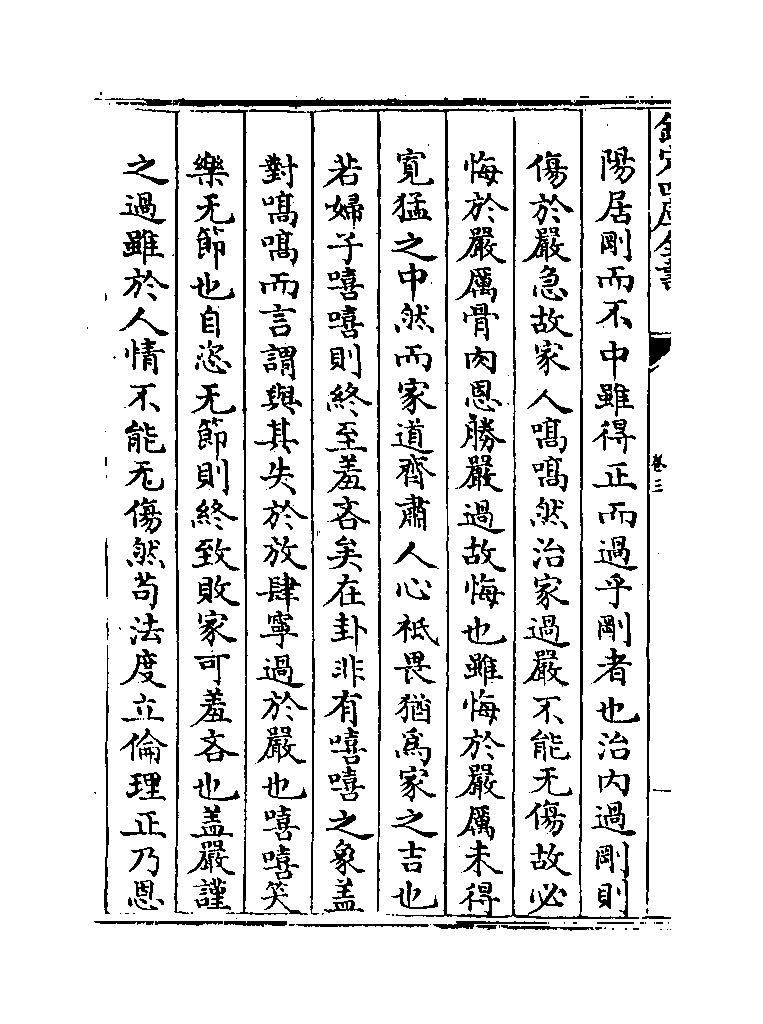 欽定四庫全書
卷三
陽居剛而不中雖得正而過乎剛者也治内過剛則
傷於嚴急故家人嗃嗃然治家過嚴不能无傷故必
悔於嚴厲骨肉恩勝嚴過故悔也雖悔於嚴厲未得
寛猛之中然而家道齊肅人心祗畏猶為家之吉也
若婦子嘻嘻則終至羞吝矣在卦非有嘻嘻之象盖
對嗃嗃而言謂與其失於放肆寧過於嚴也嘻嘻笑
樂无節也自恣无節則終致敗家可羞吝也盖嚴謹
之過雖於人情不能无傷然苟法度立倫理正乃恩